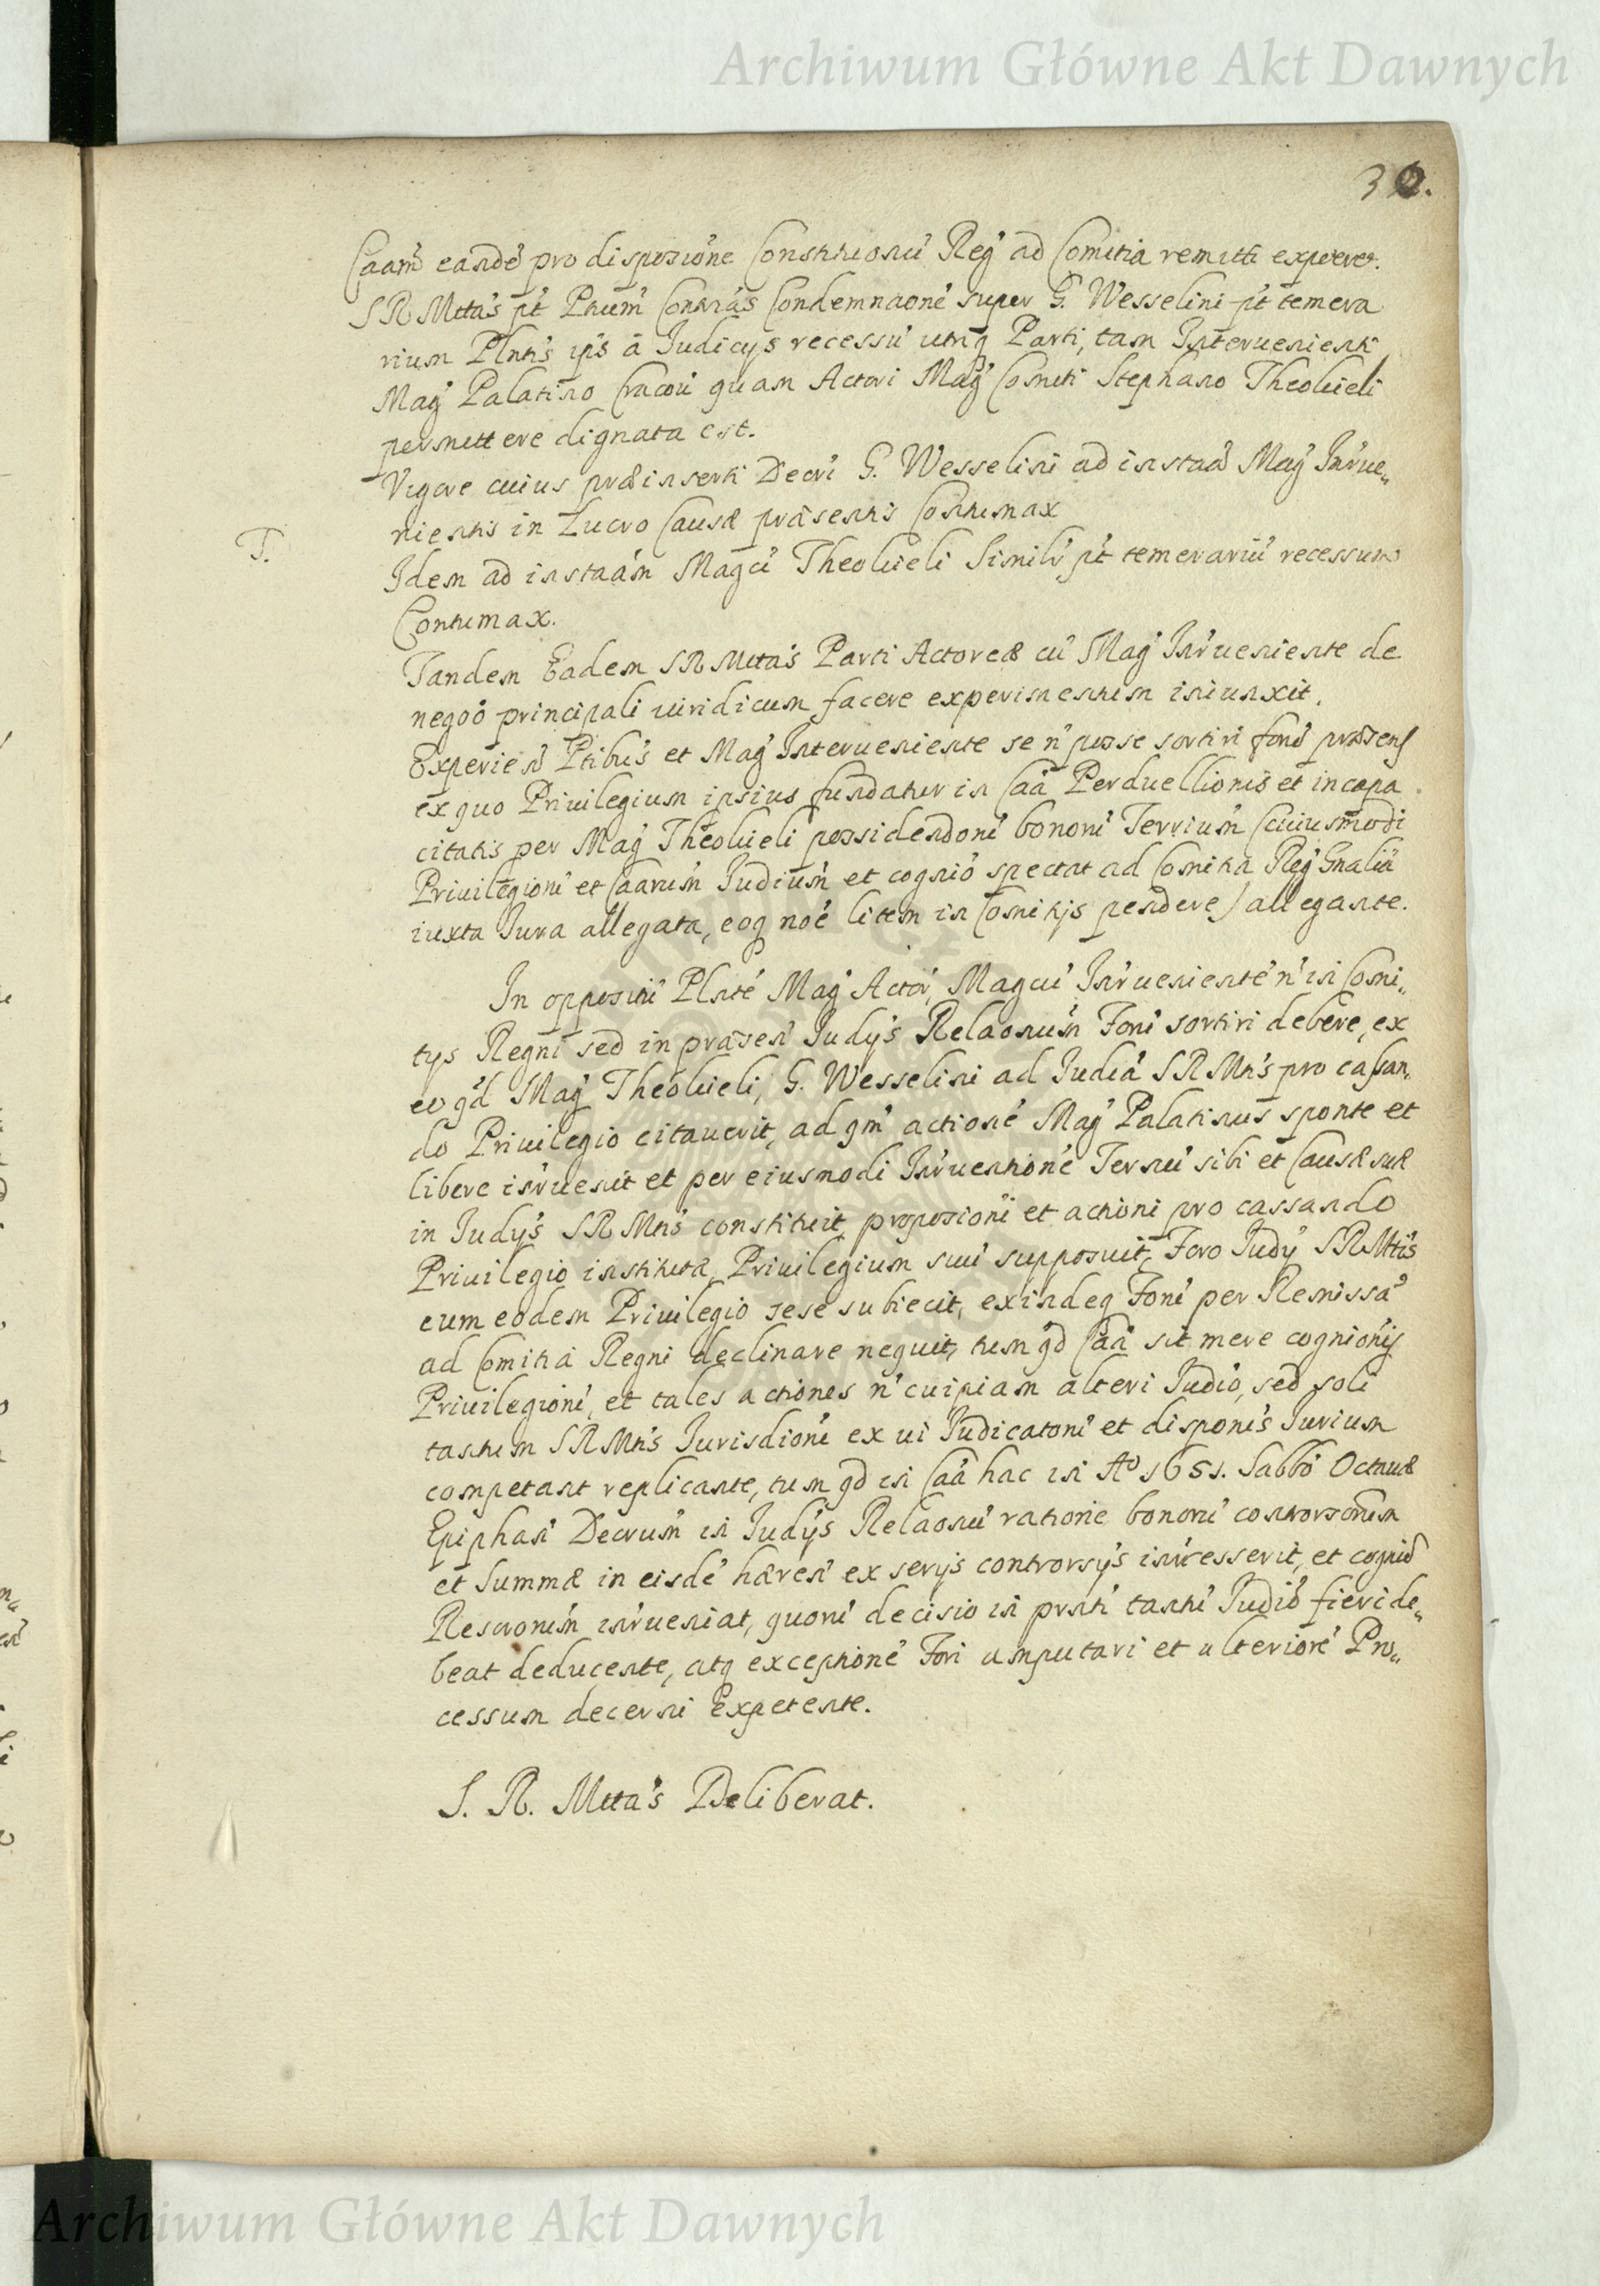 Archiwum Główne Akt Dawnych
32.
Caam̃ eandé pro dispozióne Constituonú Reg̃ ad Comitia remitti expeteret.
SRMttás pt̃ Pnum̃ Contrás Condemnaoné super G. Wesselini pt̃ temera
rium Plntis ips̃ à Judicijs recessú utriq̃ Parti, tam Intervenienti
Mag̃ Palatino Cracoú quam Actori Mag̃ Comiti Stephano Theolueli
permittere dignata est.
Vigore cuius præinserti Decrĩ G. Wesselini ad instaã Mag̃ Inrúe„
nientis in Lucro Causæ præsentis Contumax
T.
Idem ad instaám Magcĩ Theolueli Similr̃ pt̃ temerariú recessum
Contumax.
Tandem Eadem SRMttás Parti Actoreæ cú Mag̃ Inrúeniente de
negoó principali iuridicum facere experimentum iniunxit.
Experieñ Ptibús et Mag̃ Interueniente se ñ posse sortiri forú præsens
ex quo Priuilegium ipsius fundatur in Caã Perduellionis et incapa
citatis per Mag̃ Theolueli possidendorú bonorú Terrium̃ (cuiusmodi
Priuilegiorú et Caarum̃ Judium̃ et cognió spectat ad Comitia Reg̃ Gnalia
iuxta Jura allegata, eoq̃ noé litem in Comitijs pendere) allegante.
In oppositú Plnté Mag̃ Actoré, Magcú Inrúenienté ñ in Comi„
tijs Regni sed in præseñ Judijs Relaonum̃ Forú sortiri debere, ex
eo qd̃ Mag̃ Theolueli, G. Wesselini ad Judia SRMtis pro cassan„
do Priuilegio citauerit, ad qm̃ actioné Mag̃ Palatinus sponte et
libere inrúenit et per eiusmodi Inrúentioné Ternú sibi et Causæ suæ
in Judijs SRMtis constituit, propozioni et actioni pro cassando
Priuilegio institutæ, Priuilegium suú supposuit, Foro Judij SRMttis
cum eodem Priuilegio sese subiecit, exindeq̃ Forú per Remissá
ad Comitia Regni declinare nequit, tum qd̃ Caã sit mere cognionis
Priuilegiorú, et tales actiones ñ cuipiam alteri Judió, sed soli
tantum SRMtis Jurisdioni ex ui Judicatorú et disponis Iurium
competant replicante, tum qd̃ in Caã hac in Aº 1651. Sabbó Octauæ
Epiphañ Decrum̃ in Judijs Relaonú ratione bonorú controrsorum
et Summæ in eisdé hæreñ ex serijs controrsys inrcesserit, et cognió
Rescrorum̃ inrúeniat, quorú decisio in prnti tantú Judió fieri de„
beat deducente, atq̃ exceptioné Fori amputari et ulterioré Pro„
cessum decerni Expetente.
S. R. Mttás Deliberat.
Archiwum Główne Akt Dawnych